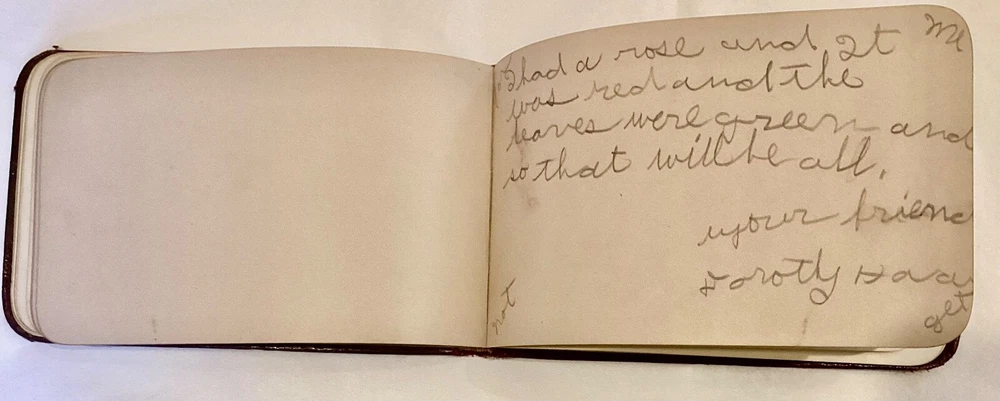 I had a rose and It
was red and the
leaves were green and
so that will be all.
your friend
Dorothy Haa
Me
not
get